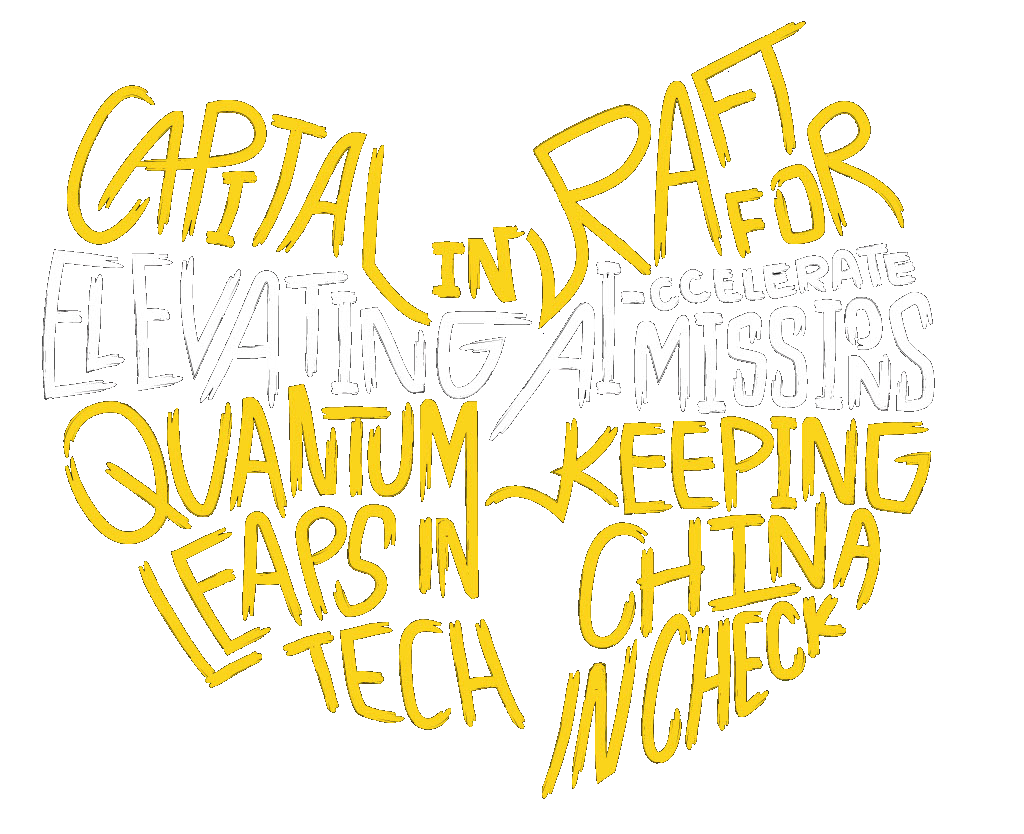 CAPITAL IN RAFT FOR
ELEVATING AI-CCELERATE
MISSIONS
QUANTUM
LEAPS IN
TECH
KEEPING
CHINA
IN CHECK